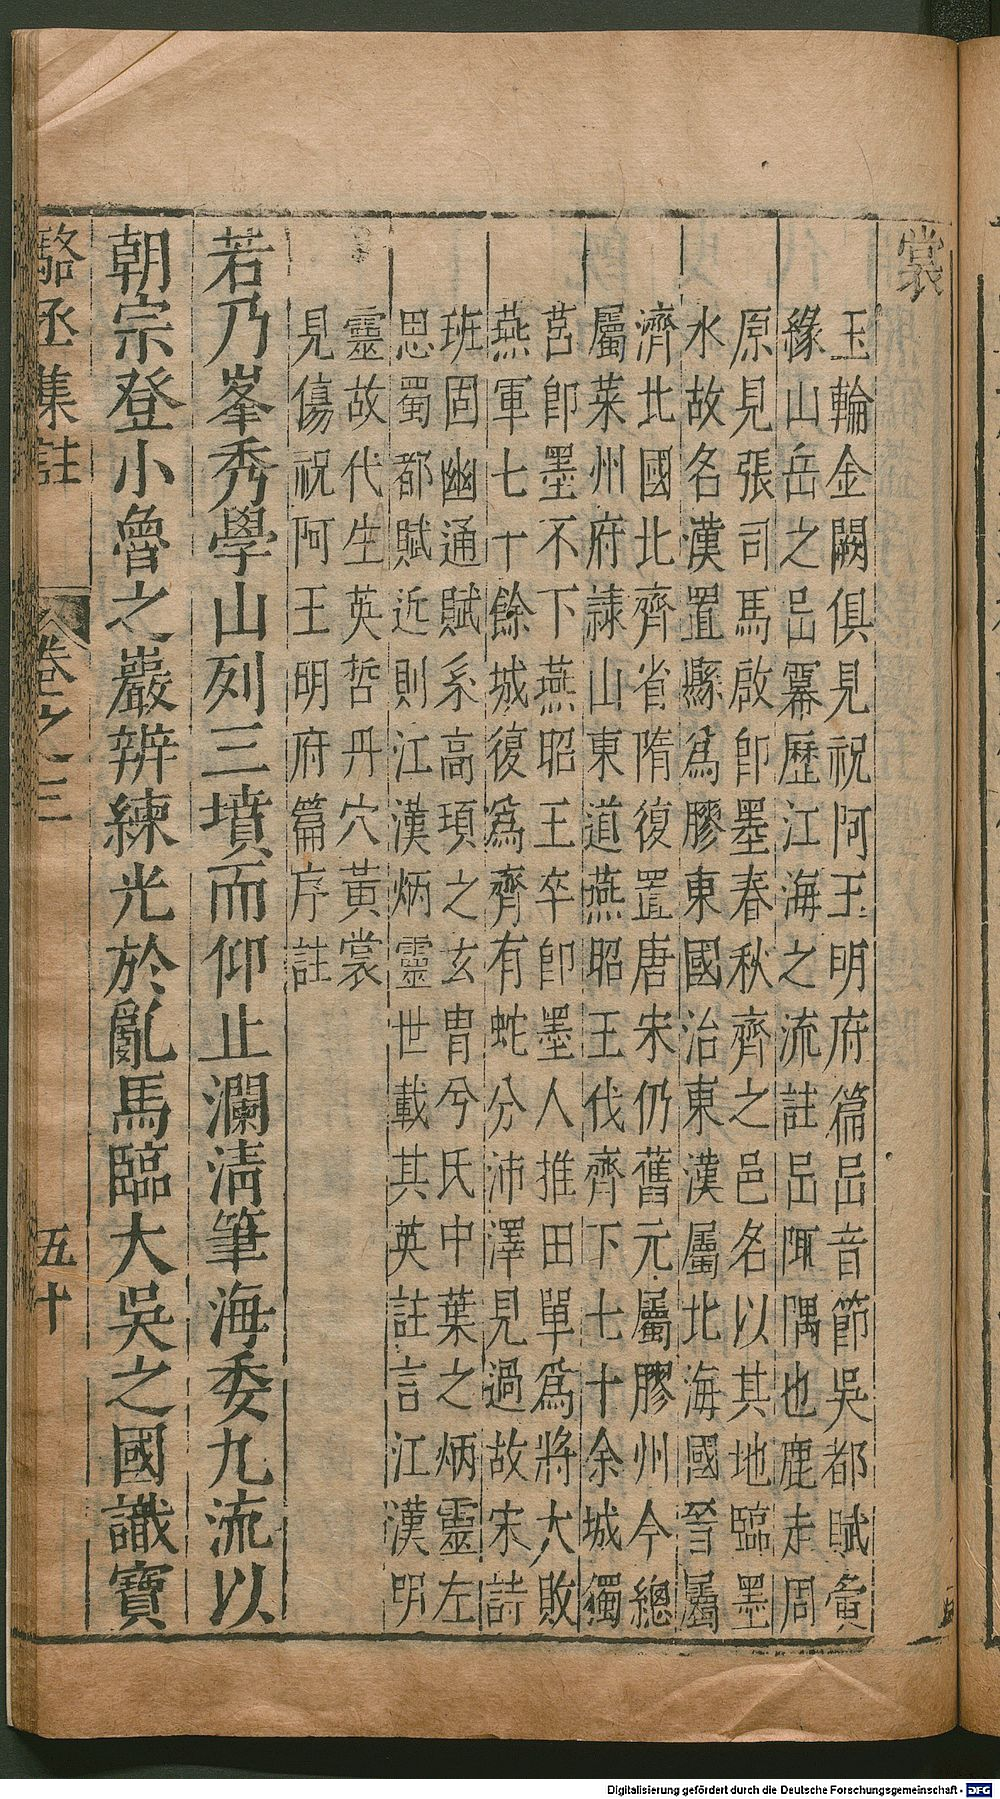 裳
玉輪金闕俱見祝阿王明府篇岊音節吳都賦夤
緣山岳之岊冪歷江海之流註岊陬隅也鹿走周
原見張司馬啟卽墨春秋齊之邑名以其地臨墨
水故名漢置縣為膠東國治東漢屬北海國晉屬
濟北國北齊省隋復置唐宋仍舊元屬膠州今總
屬萊州府隷山東道燕昭王伐齊下七十余城獨
莒卽墨不下燕昭王卒卽墨人推田單為將大敗
燕軍七十餘城復為齊有蛇分沛澤見過故宋詩
班固幽通賦系高頊之玄胄兮氏中葉之炳靈左
思蜀都賦近則江漢炳靈世載其英註言江漢明
靈故代生英哲丹穴黃裳
見傷祝阿王明府篇序註
若乃峯秀學山列三墳而仰止瀾淸筆海委九流以
朝宗登小魯之巖辨練光於亂馬臨大吳之國識寶
駱丞集註 卷之三 五十
Digitalisierung gefördert durch die Deutsche Forschungsgemeinschaft - DFG